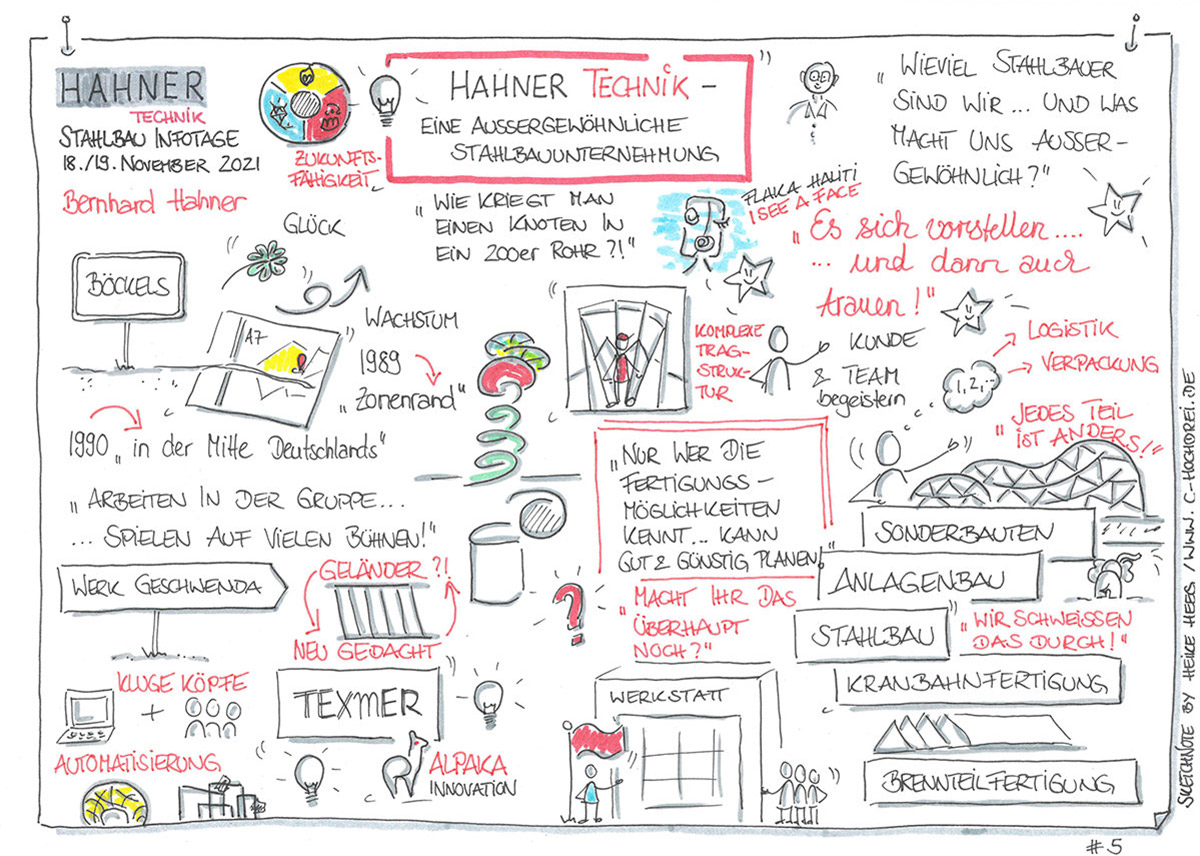 HAHNER
TECHNIK
STAHLBAU INFOTAGE
18./19. NOVEMBER 2021
Bernhard Hahner
ZUKUNFTS-
FÄHIGKEIT
HAHNER TECHNIK –
EINE AUSSERGEWÖHNLICHE
STAHLBAUUNTERNEHMUNG
„WIEVIEL STAHLBAUER
SIND WIR ... UND WAS
MACHT UNS AUSSER-
GEWÖHNLICH?"
GLÜCK
„WIE KRIEGT MAN
EINEN KNOTEN IN
EIN 200er ROHR?!"
FLAKA HALITI
I SEE A FACE
„Es sich vorstellen....
... und dann auch
trauen!"
BÖCKELS
A7
WACHSTUM
1989
„Zonenrand"
1990 „in der Mitte Deutschlands"
KOMPLEXE
TRAG-
STRUK-
TUR
KUNDE
& TEAM
begeistern
1, 2, ..
LOGISTIK
VERPACKUNG
„JEDES TEIL
IST ANDERS!"
„ARBEITEN IN DER GRUPPE...
... SPIELEN AUF VIELEN BÜHNEN!"
„NUR WER DIE
FERTIGUNGS-
MÖGLICHKEITEN
KENNT... KANN
GUT & GÜNSTIG PLANEN!"
SONDERBAUTEN
ANLAGENBAU
STAHLBAU
„WIR SCHWEISSEN
DAS DURCH!"
KRANBAHNFERTIGUNG
BRENNTEILFERTIGUNG
WERK GESCHWENDA
GELÄNDER ?!
NEU GEDACHT
?
„MACHT IHR DAS
ÜBERHAUPT
NOCH?"
KLUGE KÖPFE
+
AUTOMATISIERUNG
TEXMER
ALPAKA
INNOVATION
WERKSTATT
SKETCHNOTE BY HEIKE HEEG / WWW.C-HOCHDREI.DE
#5